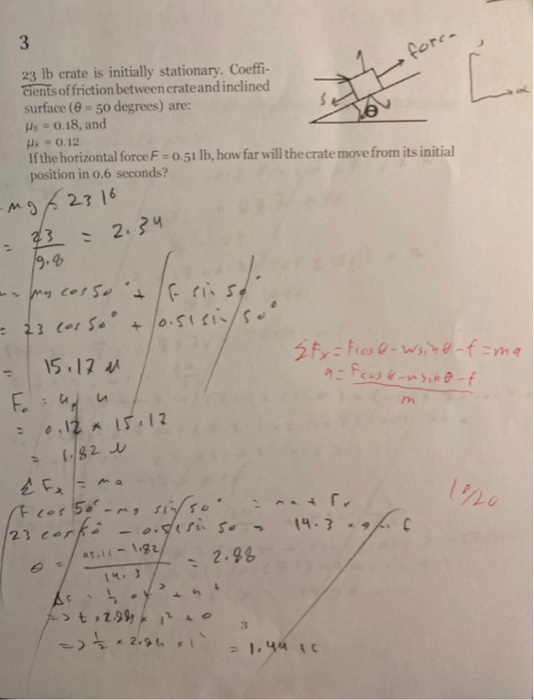 3
23 lb crate is initially stationary. Coeffi-
cients of friction between crate and inclined
surface (θ = 50 degrees) are:
μs = 0.18, and
μk = 0.12
If the horizontal force F = 0.51 lb, how far will the crate move from its initial
position in 0.6 seconds?
force
S
θ
mg = 23 lb
= 23/9.8 = 2.34
= mg cos 50° + F sin 50°
= 23 cos 50° + 0.51 sin 50°
= 15.12 N
ΣFx = Fcosθ - wsinθ - f = ma
a = Fcosθ - wsinθ - f
m
= 0.12 × 15.12
= 1.82 N
ΣFx = ma
F cos 50° - mg sin 50°
23 cos 50 - 0.51 sin 50 = 14.3
- 1.82
14.3
= 2.88
10/20
=> 1/2 × 2.86 × 1
3
= 1.44